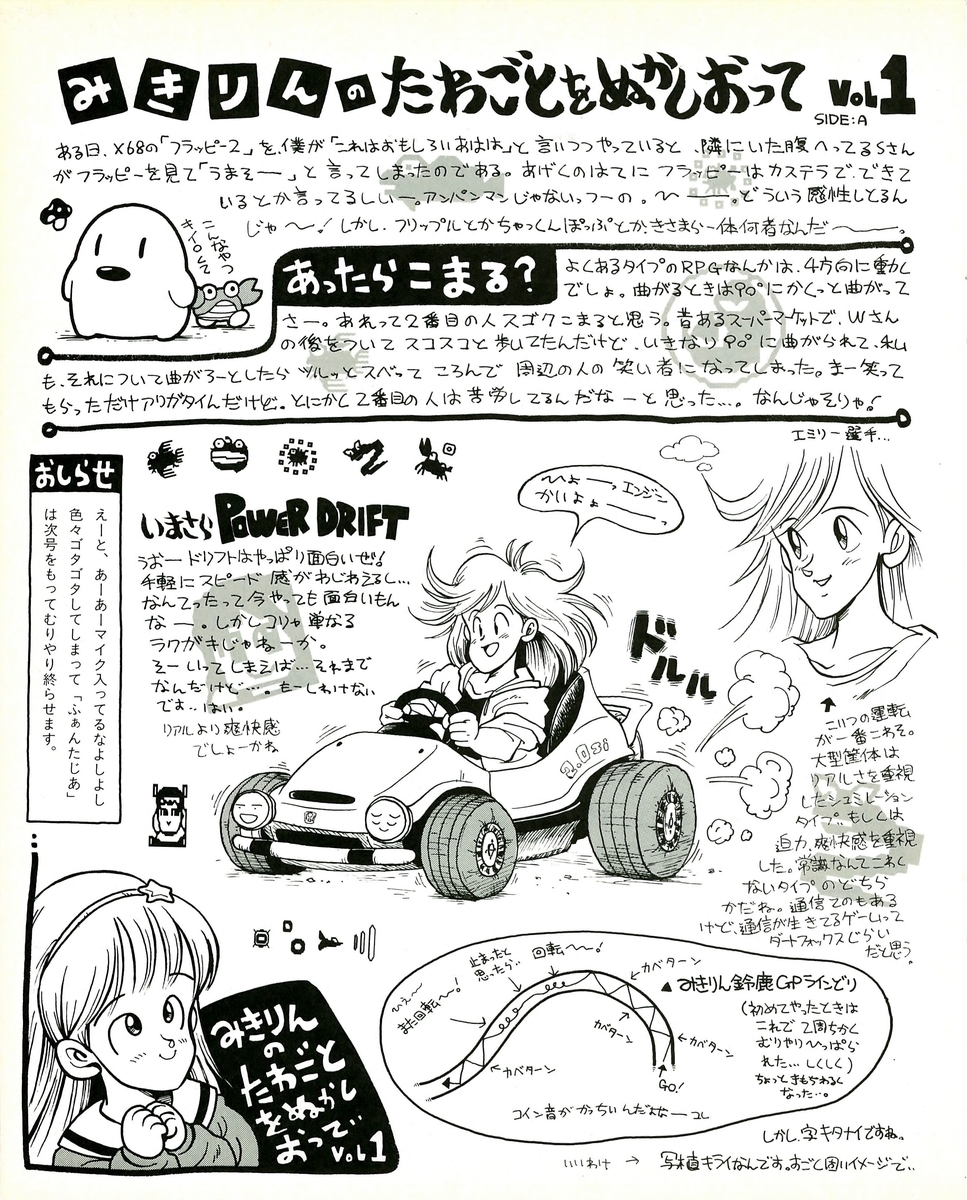 みきりんのたわごとをぬかしおって Vol1
SIDE:A
ある日、X68の「フラッピー2」を、僕が「これはおもしろいあはは」と言いつつやっていると、隣にいた腹へってるSさん
がフラッピーを見て「うまそー」と言ってしまったのである。あげくのはてにフラッピーはカステラでできて
いるとか言ってるしぃー。アンパンマンじゃないっつーの。〜ー。どういう感性しとるん
じゃ〜!しかし、フリップルとかちゃっくんぽっぷとか、きさまら一体何者なんだー。
こんなやつ
キイロくて
あったらこまる?
よくあるタイプのRPGなんかは、4方向に動く
でしょ。曲がるときは90°にかくっと曲がって
さー。あれって2番目の人スゴクこまると思う。昔あるスーパーマーケットで、Wさん
の後をついてスコスコと歩いてたんだけど、いきなり90°に曲がられて、私
も、それについて曲がろーとしたらツルッとスベってころんで周辺の人の笑い者になってしまった。まー笑って
もらっただけアリガタイんだけど。とにかく2番目の人は苦労してるんだなーと思った…。なんじゃそりゃ!
エミリー選手…
おしらせ
えーと、あーあーマイク入ってるなよしよし
色々ゴタゴタしてしまって「ふぁんたじあ」
は次号をもってむりやり終らせます。
いまさらPOWER DRIFT
うおードリフトはやっぱり面白いぜ!
手軽にスピード感があじわえるし…
なんてったって今やっても面白いもん
なー。しかしコリャ単なる
ラクガキじゃねーか。
そーいってしまえば…それまで
なんだけど…。もーしわけない
です‥はい。
リアルより爽快感
でしょーかね
ひょー エンジン
かいよぉー
ドルルル
2.0Si
こいつの運転
が一番こわそ。
大型筐体は
リアルさを重視
したシュミレーション
タイプ、もしくは
迫力、爽快感を重視
した。常識なんてこわく
ないタイプのどちら
かだね。通信てのもある
けど、通信が生きてるゲームって
ダートフォックスじらい
だと思う。
みきりん
の
たわごと
をぬかし
おって‥
Vol1
止まったと
思ったら‥
回転〜!
カバターン
ひぇ〜
また回転〜!
カバターン
カバターン
カバターン
GO!
▲みきりん鈴鹿GPラインどり
(初めてやったときは
これで2周ちかく
むりやりひっぱら
れた…しくしく)
ちょっときもちわるく
なった…。
コイン音がかっちいんだよなーコレ
しかし、字キタナイですね。
いいわけ → 写植キライなんです。すごく固いイメージで‥